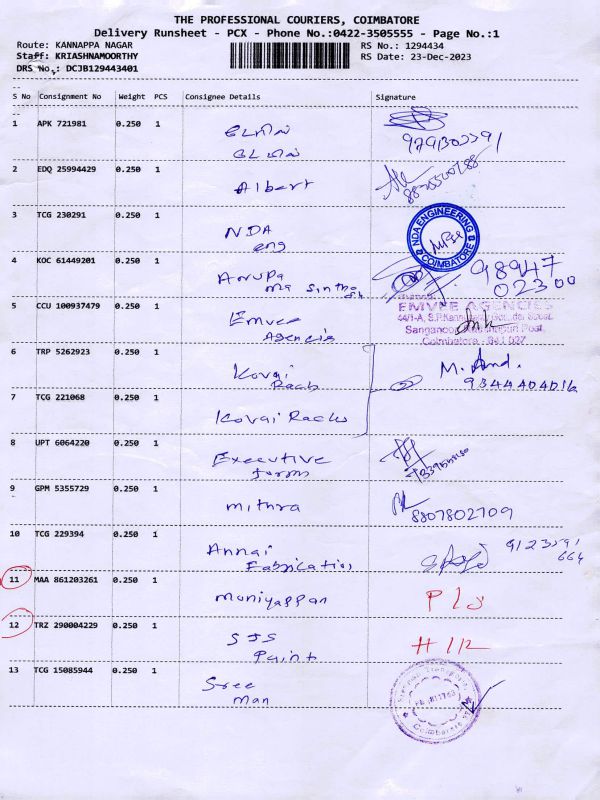 THE PROFESSIONAL COURIERS, COIMBATORE
Delivery Runsheet - PCX - Phone No.:0422-3505555 - Page No.:1
Route: KANNAPPA NAGAR
RS No.: 1294434
Staff: KRIASHNAMOORTHY
RS Date: 23-Dec-2023
DRS No.: DCJB129443401
S No Consignment No Weight PCS Consignee Details Signature
1 APK 721981 0.250 1
9791302391
2 EDQ 25994429 0.250 1 Albert
3 TCG 230291 0.250 1 NDA
eng
NDA ENGINEERING
COIMBATORE
4 KOC 61449201 0.250 1 Anupa
98947
02300
5 CCU 100937479 0.250 1 Emvee
Agencis
EMVEE AGENCIES
Coimbatore - 641 027
6 TRP 5262923 0.250 1 Kovai
Rack
M.
9344404016
7 TCG 221068 0.250 1 Kovai Racks
8 UPT 6064220 0.250 1 Executive
forms
9 GPM 5355729 0.250 1 mithra
8807802709
10 TCG 229394 0.250 1 Annai
Fabrication
9123591
664
11 MAA 861203261 0.250 1 Muniyappan
P L S
12 TRZ 290004229 0.250 1 SJS
Paint
13 TCG 15085944 0.250 1 Sree
man
Coimbatore